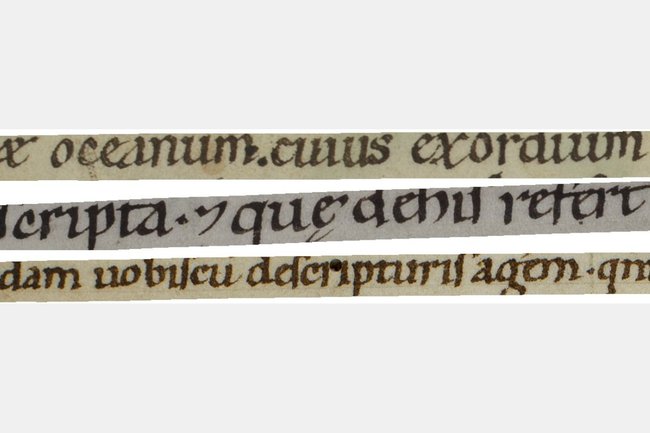 æ oceanum. cuius exordium
scripta · ⁊ quę dehis refert
dam uobiscū descripturis agem · qm